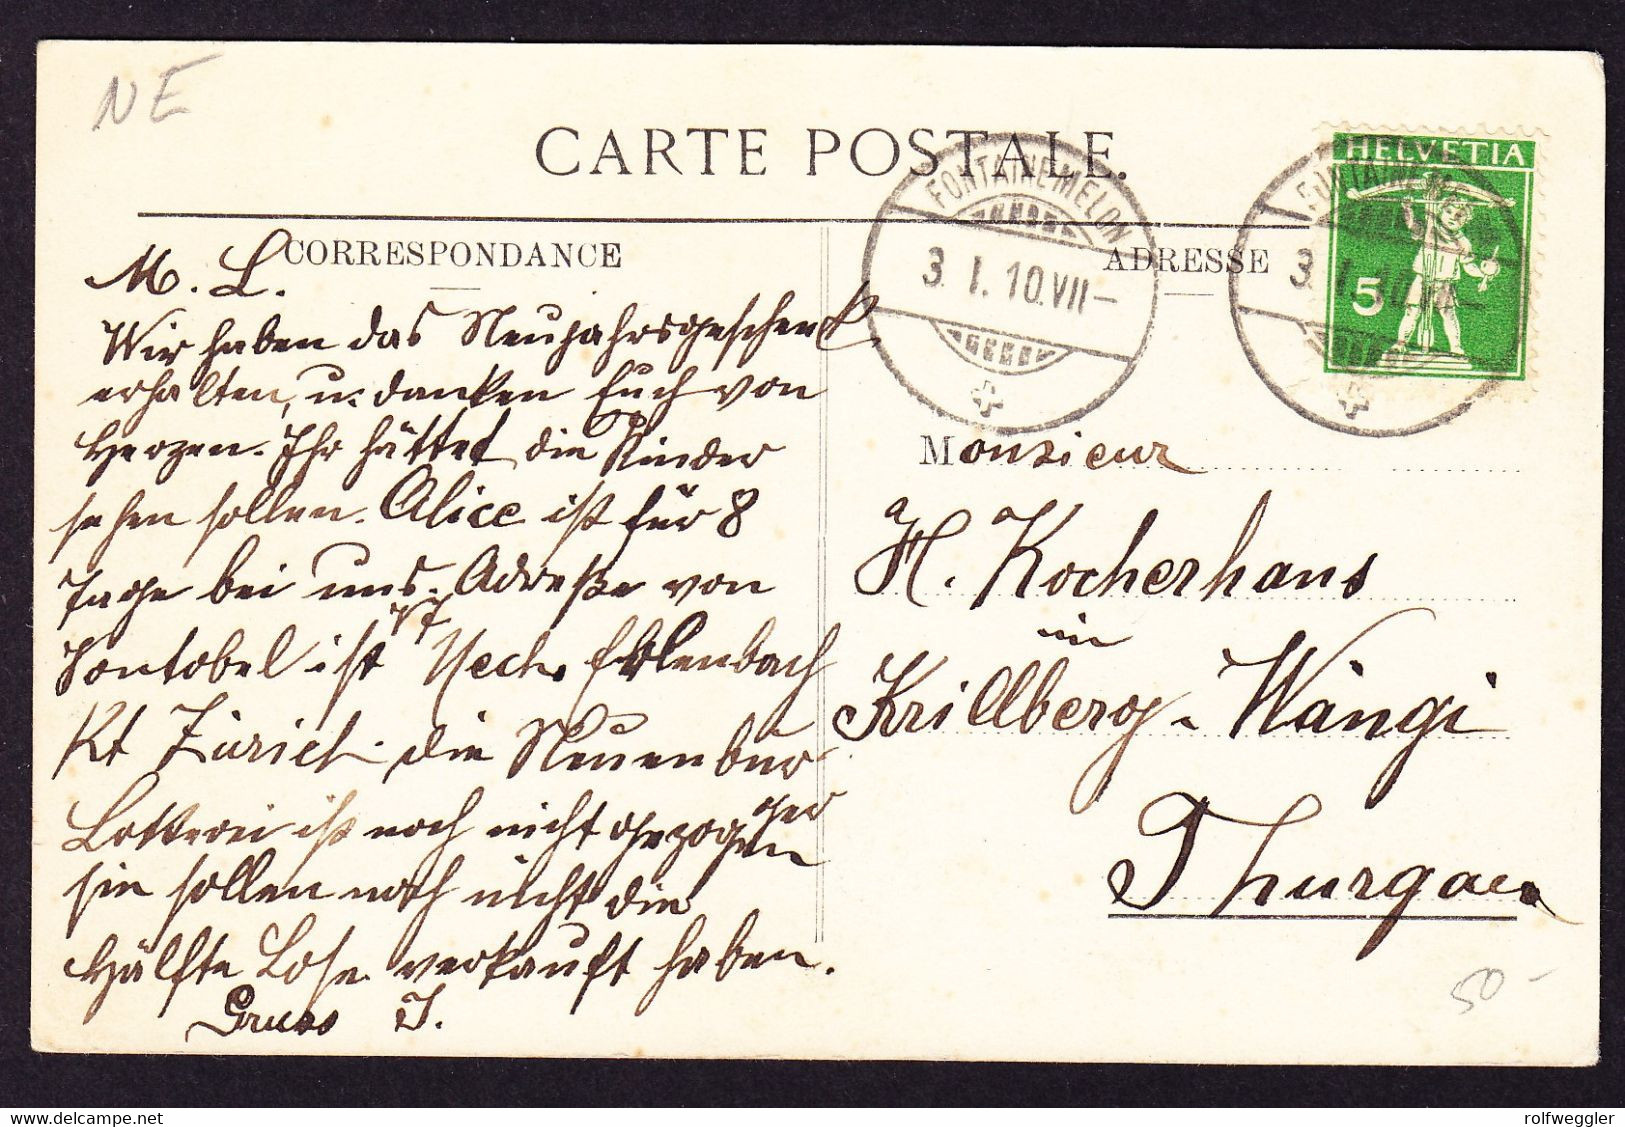 NE
CARTE POSTALE.
FONTAINEMELON
3. I. 10. VII–
FONTAINEMELON
3. I. 10. VII–
HELVETIA
5
CORRESPONDANCE
ADRESSE
M. L.
Wir haben das Neujahrsgeschenk
erhalten, u. danken Euch von
Herzen. Ihr hättet die Kinder
sehen sollen. Alice ist für 8
Tage bei uns. Adresse von
ist Mech. Erlenbach
Kt Zürich. die Neuenbur
ger
Lotterie ist noch nicht gezogen
sie sollen noch nicht die
Hälfte Lose verkauft haben.
Gruss J.
Monsieur
H. Kocherhans
in
Krillberg-Wängi
Thurgau
50-
rolfweggler